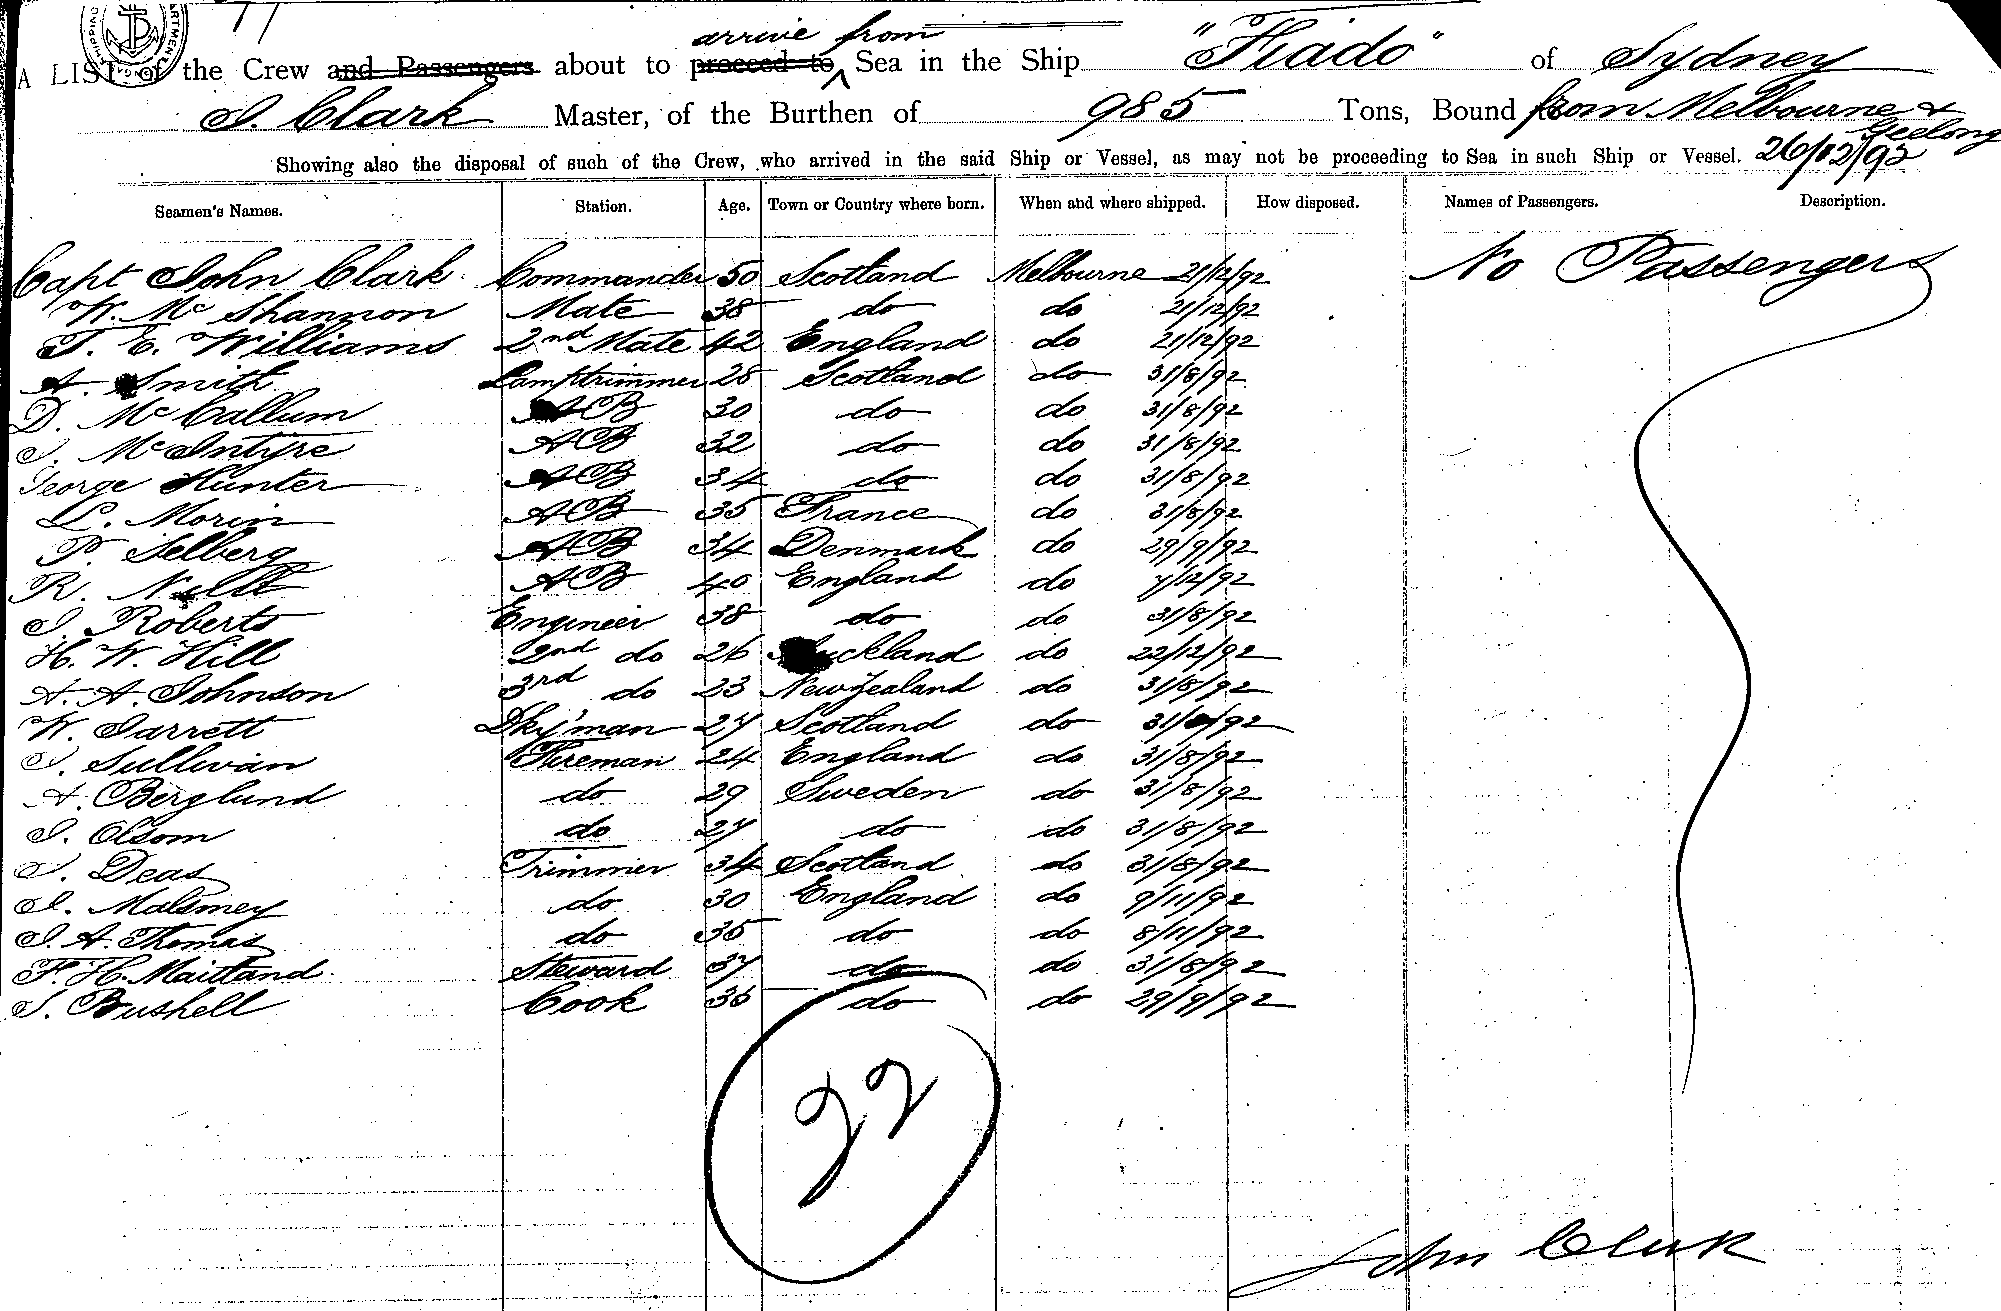 arrive from
A LIST of the Crew and Passengers about to proceed to Sea in the Ship "Fiado" of Sydney
J. Clark Master, of the Burthen of 985 Tons, Bound from Melbourne & Geelong
Showing also the disposal of such of the Crew, who arrived in the said Ship or Vessel, as may not be proceeding to Sea in such Ship or Vessel. 26/12/92
Seamen's Names. Station. Age. Town or Country where born. When and where shipped. How disposed. Names of Passengers. Description.
Capt John Clark Commander 50 Scotland Melbourne 21/12/92 No Passengers
W. Mc Shannon Mate 38 do do 21/12/92
T. E. Williams 2nd Mate 42 England do 21/12/92
A. Smith Lamptrimmer 28 Scotland do 31/8/92
D. Mc Callum AB 30 do do 31/8/92
J. McIntyre AB 32 do do 31/8/92
George Hunter AB 34 do do 31/8/92
L. Morin AB 35 France do 31/8/92
P. Selberg AB 34 Denmark do 29/9/92
R. AB 40 England do 7/12/92
J. Roberts Engineer 38 do do 31/8/92
H. W. Hill 2nd do 26 Auckland do 22/12/92
A. A. Johnson 3rd do 23 New Zealand do 31/8/92
W. Jarrett Dky'man 27 Scotland do 31/8/92
J. Sullivan Fireman 24 England do 31/8/92
A. Berglund do 29 Sweden do 31/8/92
J. Olsom do 27 do do 31/8/92
J. Deas Trimmer 34 Scotland do 31/8/92
J. Malsmey do 30 England do 9/11/92
J. A. Thomas do 35 do do 8/11/92
F. H. Maitland Steward 37 do do 31/8/92
J. Bushell Cook 36 do do 29/9/92
22
John Clark